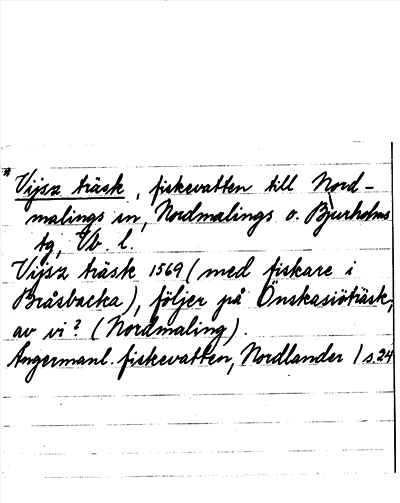 * Vijsz träsk, fiskevatten till Nord-
malings sn, Nordmalings o. Bjurholms
tg, Vb. l.
Vijsz träsk 1569 (med fiskare i
Bråsbacka), följer på Önskasiöträsk,
av vi? (Nordmaling).
Ångermanl. fiskevatten, Nordlander 1 s.24